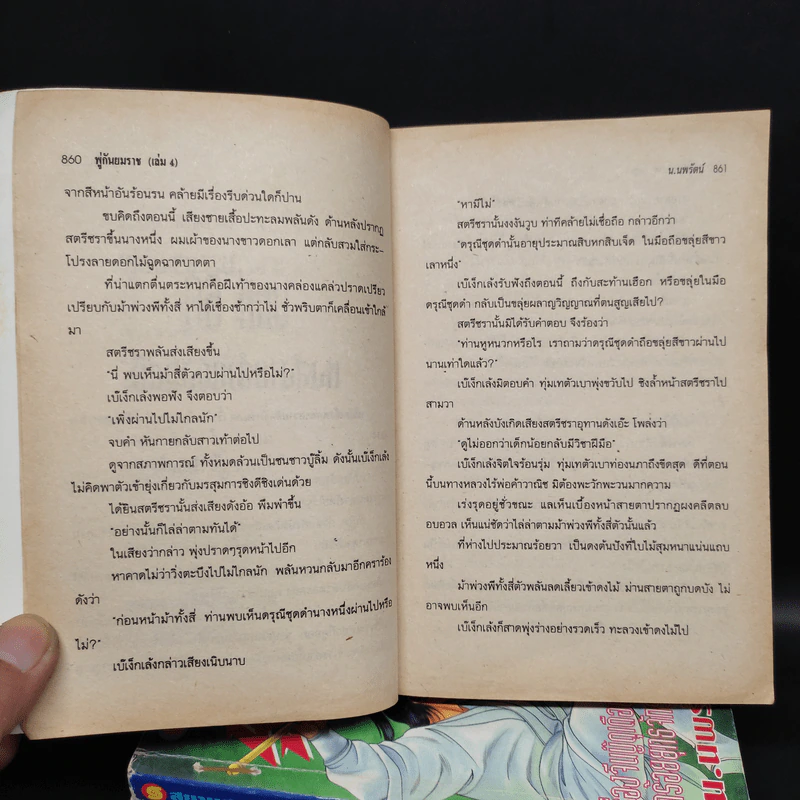 860 พู่กันยมราช (เล่ม 4)
จากสีหน้าอันร้อนรน คล้ายมีเรื่องรีบด่วนใดก็ปาน
ขบคิดถึงตอนนี้ เสียงชายเสื้อปะทะลมพลันดัง ด้านหลังปรากฏ
สตรีชราขึ้นนางหนึ่ง ผมเผ้าของนางขาวดอกเลา แต่กลับสวมใส่กระ-
โปรงลายดอกไม้ฉูดฉาดบาดตา
ที่น่าแตกตื่นตระหนกคือฝีเท้าของนางคล่องแคล่วปราดเปรียว
เปรียบกับม้าพ่วงพีทั้งสี่ หาได้เชื่องช้ากว่าไม่ ชั่วพริบตาก็เคลื่อนเข้าใกล้
มา
สตรีชราพลันส่งเสียงขึ้น
"นี่ พบเห็นม้าสี่ตัวควบผ่านไปหรือไม่?"
เป๊เง็กเล้งพอฟัง จึงตอบว่า
"เพิ่งผ่านไปไม่ไกลนัก"
จบคำ หันกายกลับสาวเท้าต่อไป
ดูจากสภาพการณ์ ทั้งหมดล้วนเป็นชนชาวบู๊ลิ้ม ดังนั้นเป๊เง็กเล้ง
ไม่คิดพาตัวเข้ายุ่งเกี่ยวกับมรสุมการชิงดีชิงเด่นด้วย
ได้ยินสตรีชรานั้นส่งเสียงดังอ้อ พึมพำขึ้น
"อย่างนั้นก็ไล่ล่าตามทันได้"
ในเสียงว่ากล่าว พุ่งปราดๆรุดหน้าไปอีก
หาคาดไม่ว่าวิ่งตะบึงไปไม่ไกลนัก พลันหวนกลับมาอีกคราร้อง
ดังว่า
"ก่อนหน้าม้าทั้งสี่ ท่านพบเห็นดรุณีชุดดำนางหนึ่งผ่านไปหรือ
ไม่?"
เป๊เง็กเล้งกล่าวเสียงเนิบนาบ
น.นพรัตน์ 861
"หามีไม่"
สตรีชรานั้นงงงันวูบ ท่าทีคล้ายไม่เชื่อถือ กล่าวอีกว่า
"ดรุณีชุดดำนั้นอายุประมาณสิบหกสิบเจ็ด ในมือถือขลุ่ยสีขาว
เลาหนึ่ง"
เป๊เง็กเล้งรับฟังถึงตอนนี้ ถึงกับสะท้านเฮือก หรือขลุ่ยในมือ
ดรุณีชุดดำ กลับเป็นขลุ่ยผลาญวิญญาณที่ตนสูญเสียไป?
สตรีชรานั้นมิได้รับคำตอบ จึงร้องว่า
"ท่านหูหนวกหรือไร เราถามว่าดรุณีชุดดำถือขลุ่ยสีขาวผ่านไป
นานเท่าใดแล้ว?"
เป๊เง็กเล้งมิตอบคำ ทุ่มเทตัวเบาพุ่งขวับไป ชิงล้ำหน้าสตรีชราไป
สามวา
ด้านหลังบังเกิดเสียงสตรีชราอุทานดังเอ๊ะ โพล่งว่า
"ดูไม่ออกว่าเด็กน้อยกลับมีวิชาฝีมือ"
เป๊เง็กเล้งจิตใจร้อนรุ่ม ทุ่มเทตัวเบาท่องนภาถึงขีดสุด ดีที่ตอน
นี้บนทางหลวงไร้พ่อค้าวาณิช มิต้องพะวักพะวนมากความ
เร่งรุดอยู่ชั่วขณะ แลเห็นเบื้องหน้าสายตาปรากฏผงคลีตลบ
อบอวล เห็นแน่ชัดว่าไล่ล่าตามม้าพ่วงพีทั้งสี่ตัวนั้นแล้ว
ที่ห่างไปประมาณร้อยวา เป็นดงต้นปังที่ใบไม้สุมหนาแน่นแถบ
หนึ่ง
ม้าพ่วงพีทั้งสี่ตัวพลันลดเลี้ยวเข้าดงไม้ ม่านสายตาถูกบดบัง ไม่
อาจพบเห็นอีก
เป๊เง็กเล้งก็สาดพุ่งร่างอย่างรวดเร็ว ทะลวงเข้าดงไม้ไป